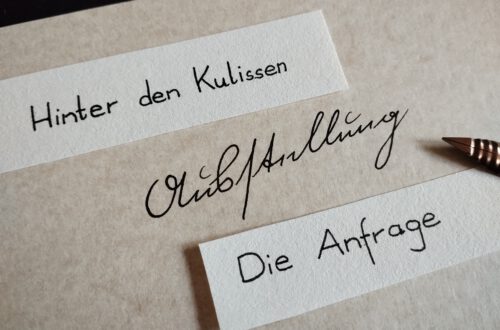 Hinter den Kulissen
Ausstellung
Die Anfrage